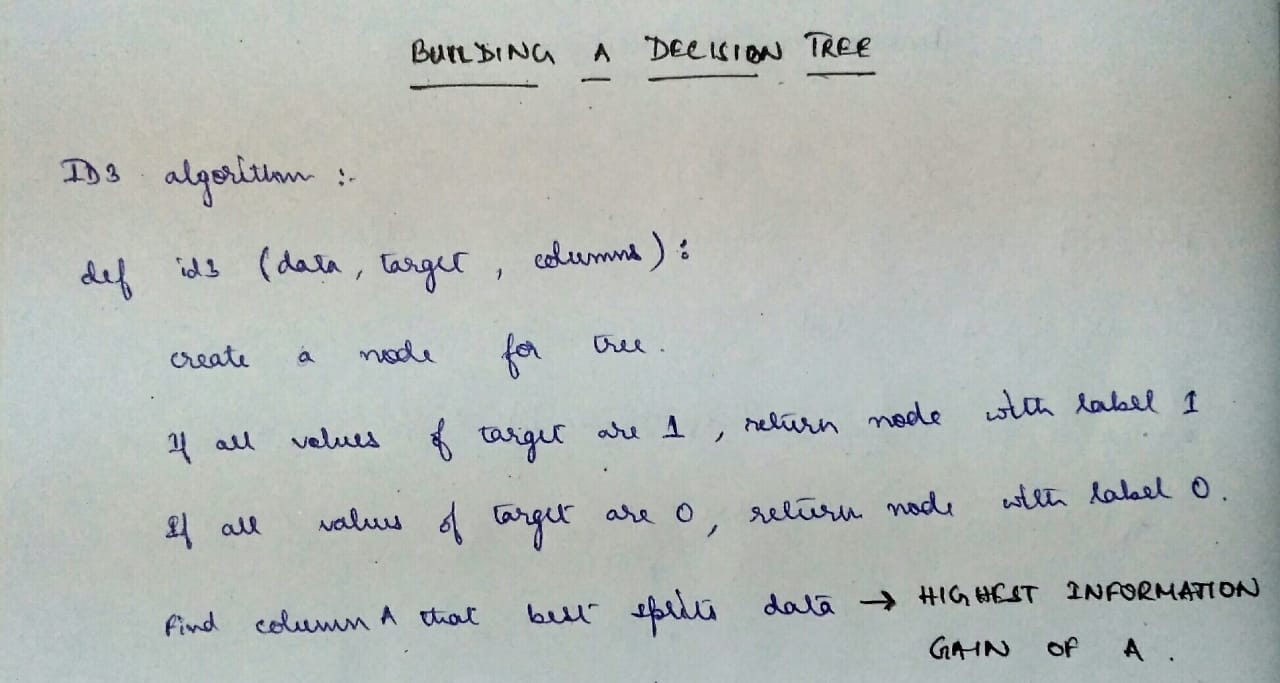 BUILDING A DECISION TREE
ID3 algorithm :-
def id3 (data, target, columns):
create a node for tree.
If all values of target are 1, return node with label 1
If all values of target are 0, return node with label 0.
Find column A that best splits data → HIGHEST INFORMATION
GAIN OF A.